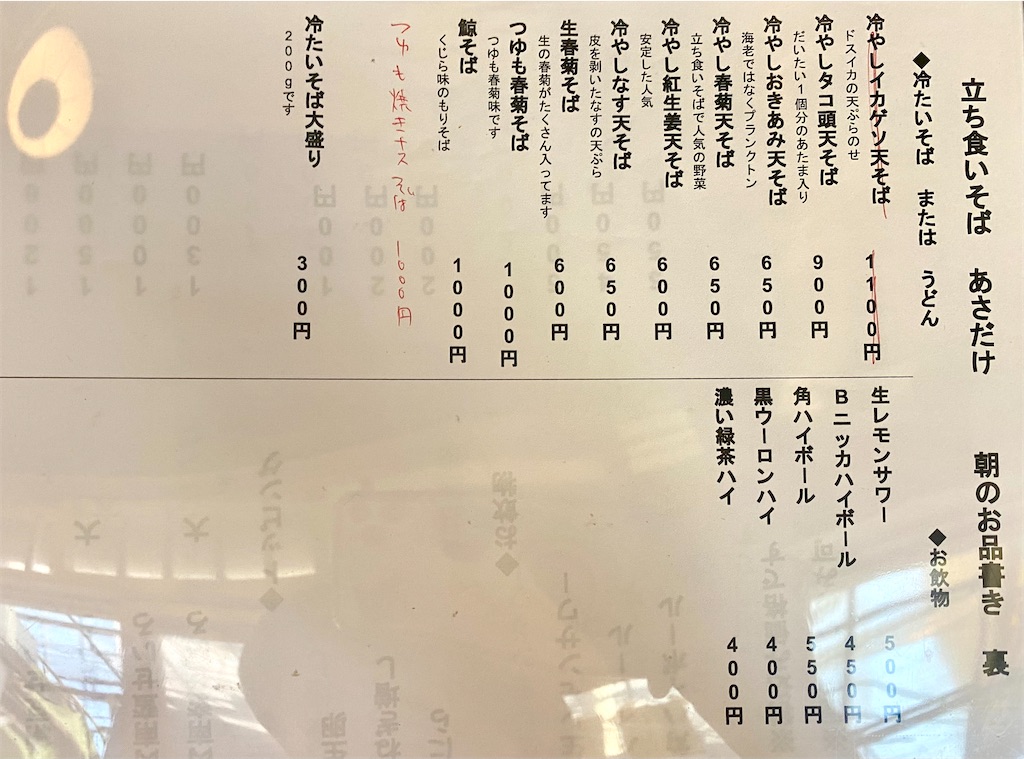 立ち食いそば あさだけ 朝のお品書き 裏
◆冷たいそば または うどん
冷やしイカゲソ天そば 1100円
ドスイカの天ぷらのせ
冷やしタコ頭天そば 900円
だいたい1個分のあたま入り
冷やしおきあみ天そば 650円
海老ではなくプランクトン
冷やし春菊天そば 650円
立ち食いそばで人気の野菜
冷やし紅生姜天そば 600円
安定した人気
冷やしなす天そば 650円
皮を剥いたなすの天ぷら
生春菊そば 600円
生の春菊がたくさん入ってます
つゆも春菊そば 1000円
つゆも春菊味です
鯨そば 1000円
くじら味のもりそば
つゆも焼きナスそば 1000円
冷たいそば大盛り 300円
200gです
◆お飲物
生レモンサワー 500円
Bニッカハイボール 450円
角ハイボール 550円
黒ウーロンハイ 400円
濃い緑茶ハイ 400円